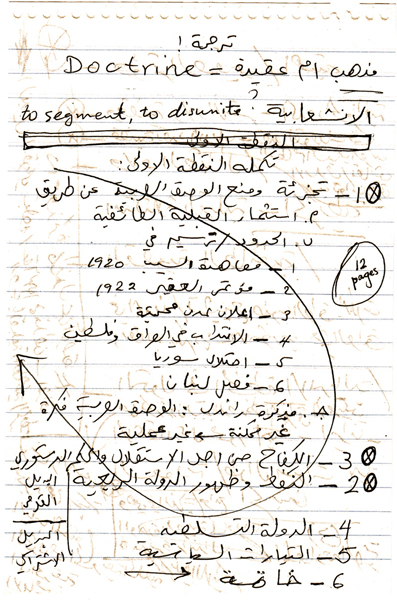 ترجمة !
Doctrine = مذهب ام عقيدة
?
to segment, to disunite الانشعابية
النقطة الاولى
تكملة النقطة الاولى:
1 – تجزئة ومنع الوحدة العربية عن طريق
م. استثمار القبلية الطائفية
ن. الحدود / ترسيم في
1 – معاهدة السيب 1920
2 – مؤتمر العقير 1922
12 pages
3 – اعلان عدن محمية
4 – الانتداب في العراق وفلسطين
5 – احتلال سوريا
6 – فصل لبنان
مذكرة راندل : الوحدة العربية فكرة
غير ممكنة غير عملية
3 – الكفاح من اجل الاستقلال والحكم الدستوري
2 – النفط وظهور الدولة الريعية
البديل
القومي
4 – الدولة التسلطية
البديل
الاشتراكي
5 – التيارات السياسية
6 – خاتمة